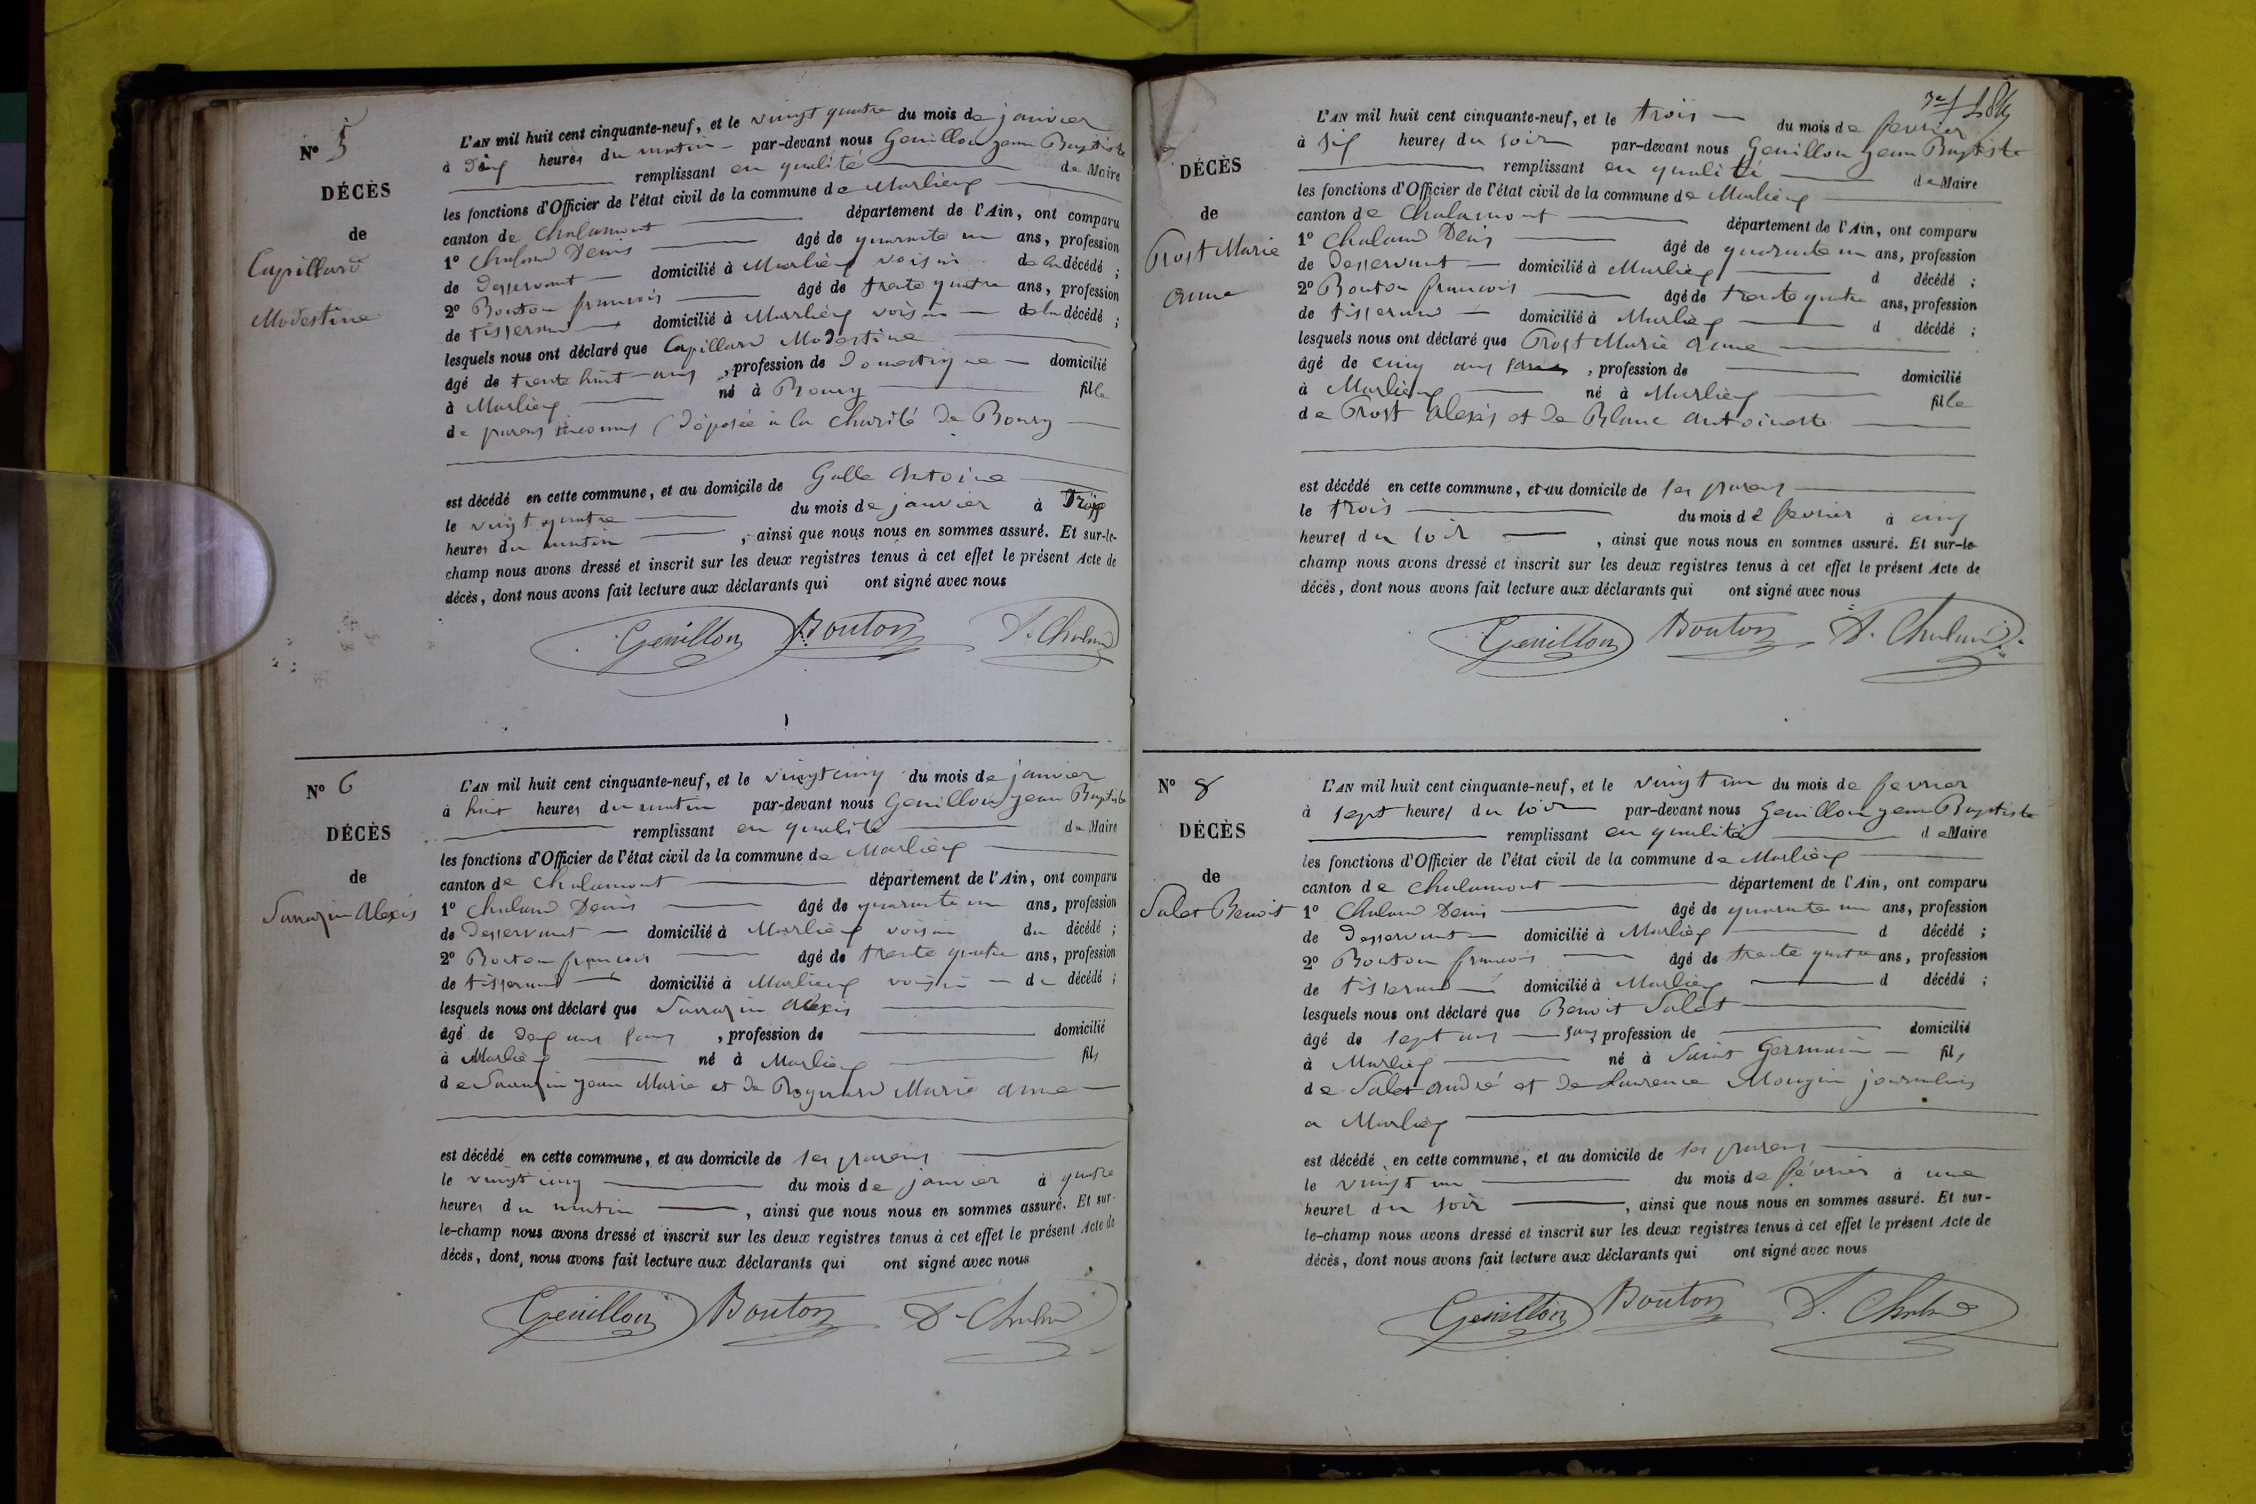 N° 5
DÉCÈS
de
Capillard
Modestine
L'AN mil huit cent cinquante-neuf, et le vingt quatre du mois de janvier
à dix heures du matin par-devant nous Genillon jean Baptiste
remplissant en qualité de Maire
les fonctions d'Officier de l'état civil de la commune de Marlieux
canton de Chalamont département de l'Ain, ont comparu
1° Chaland Denis âgé de quarante un ans, profession
de Desservant domicilié à Marlieux voisin de la décédé ;
2° Bouton francois âgé de trente quatre ans, profession
de tisserand domicilié à Marlieux voisin de la décédé ;
lesquels nous ont déclaré que Capillard Modestine
âgé de trente huit ans, profession de domestique domicilié
à Marlieux né à Bourg fille
de parens inconnus (déposée à la charité de Bourg
est décédé en cette commune, et au domicile de Galle Antoine
le vingt quatre du mois de janvier à
heures du matin, ainsi que nous nous en sommes assuré. Et sur-le-
champ nous avons dressé et inscrit sur les deux registres tenus à cet effet le présent Acte de
décès, dont nous avons fait lecture aux déclarants qui ont signé avec nous
Genillon Bouton D. Chaland
N° 6
DÉCÈS
de
Sarrazin Alexis
L'AN mil huit cent cinquante-neuf, et le vingt cinq du mois de janvier
à huit heures du matin par-devant nous Genillon jean Baptiste
remplissant en qualité de Maire
les fonctions d'Officier de l'état civil de la commune de Marlieux
canton de Chalamont département de l'Ain, ont comparu
1° Chaland Denis âgé de quarante un ans, profession
de Desservant domicilié à Marlieux voisin du décédé ;
2° Bouton francois âgé de trente quatre ans, profession
de tisserand domicilié à Marlieux voisin du décédé ;
lesquels nous ont déclaré que Sarrazin Alexis
âgé de deux ans sans, profession de domicilié
à Marlieux né à Marlieux fils
de Sarrazin jean Marie et de Roynard Marie anne
est décédé en cette commune, et au domicile de ses parens
le vingt cinq du mois de janvier à quatre
heures du matin, ainsi que nous nous en sommes assuré. Et sur-
le-champ nous avons dressé et inscrit sur les deux registres tenus à cet effet le présent Acte de
décès, dont nous avons fait lecture aux déclarants qui ont signé avec nous
Genillon Bouton D. Chaland
DÉCÈS
de
Prost Marie
anne
L'AN mil huit cent cinquante-neuf, et le trois du mois de fevrier
à six heures du soir par-devant nous Genillon jean Baptiste
remplissant en qualité de Maire
les fonctions d'Officier de l'état civil de la commune de Marlieux
canton de Chalamont département de l'Ain, ont comparu
1° Chaland Denis âgé de quarante un ans, profession
de Desservant domicilié à Marlieux d décédé ;
2° Bouton francois âgé de trente quatre ans, profession
de tisserand domicilié à Marlieux d décédé ;
lesquels nous ont déclaré que Prost Marie anne
âgé de cinq ans sans, profession de domicilié
à Marlieux né à Marlieux fille
de Prost Alexis et de Blanc Antoinette
est décédé en cette commune, et au domicile de ses parens
le trois du mois de fevrier à cinq
heures du soir, ainsi que nous nous en sommes assuré. Et sur-le-
champ nous avons dressé et inscrit sur les deux registres tenus à cet effet le présent Acte de
décès, dont nous avons fait lecture aux déclarants qui ont signé avec nous
Genillon Bouton D. Chaland
N° 8
DÉCÈS
de
Salet Benoit
L'AN mil huit cent cinquante-neuf, et le vingt un du mois de fevrier
à sept heures du soir par-devant nous Genillon jean Baptiste
remplissant en qualité de Maire
les fonctions d'Officier de l'état civil de la commune de Marlieux
canton de Chalamont département de l'Ain, ont comparu
1° Chaland Denis âgé de quarante un ans, profession
de Desservant domicilié à Marlieux d décédé ;
2° Bouton francois âgé de trente quatre ans, profession
de tisserand domicilié à Marlieux d décédé ;
lesquels nous ont déclaré que Benoit Salet
âgé de sept ans sans profession de domicilié
à Marlieux né à Saint Germain fils
de Salet andré et de Laurence Mougin journaliers
a Marlieux
est décédé en cette commune, et au domicile de ses parens
le vingt un du mois de février à une
heures du soir, ainsi que nous nous en sommes assuré. Et sur-
le-champ nous avons dressé et inscrit sur les deux registres tenus à cet effet le présent Acte de
décès, dont nous avons fait lecture aux déclarants qui ont signé avec nous
Genillon Bouton D. Chaland